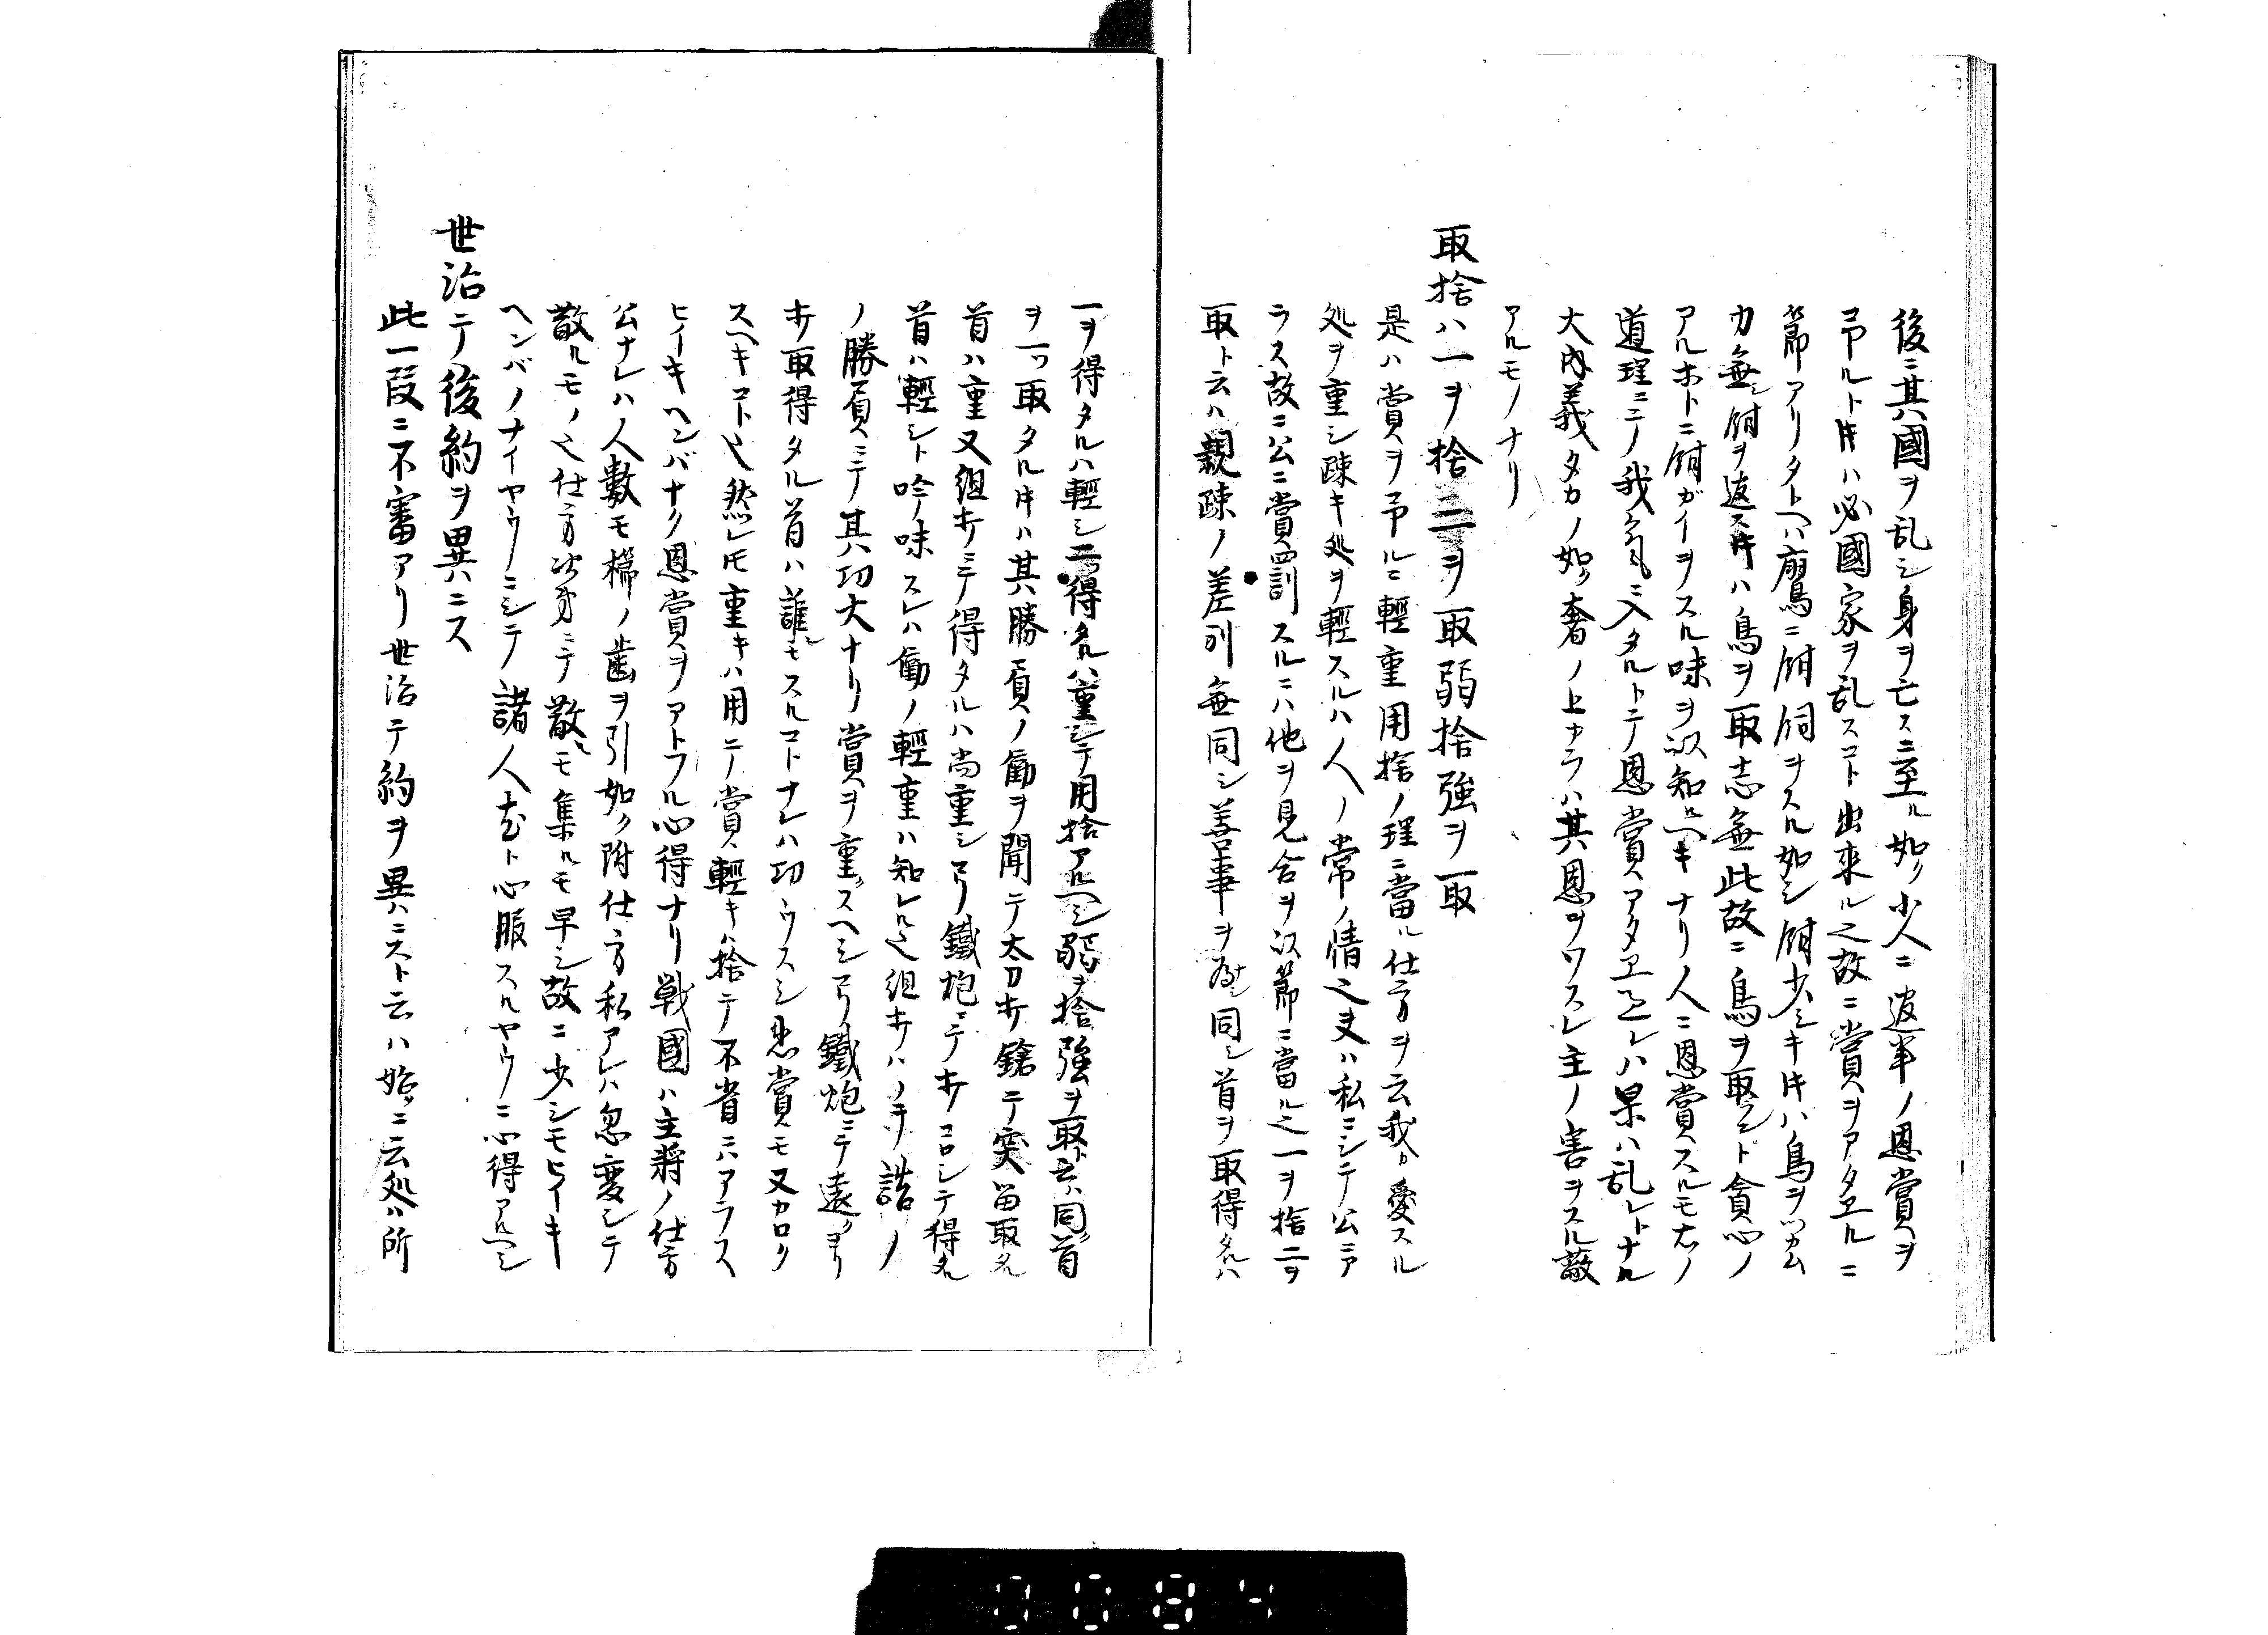 後ニ其國ヲ乱シ身ヲ亡スニ至ル如ク少人ニ過半ノ恩賞ヲ
帀ルト𪜈ハ必國家ヲ乱スコト出来ル之故ニ賞ヲアタヱルニ
節アリタトヘハ鷹ニ餌飼ヲスル如シ餌少キ𪜈ハ鳥ヲツカム
力無シ餌ヲ過ス𪜈ハ鳥ヲ取志無此故ニ鳥ヲ取ント貪心ノ
アルホトニ餌ガイヲスル味ヲ以知ルヘキナリ人ニ恩賞スルモ右ノ
道理ニテ我氣ニ入タルトテ恩賞アタヱ
大内義タカノ如ク奢ノ上カラハ其恩ヲワスレ主ノ害ヲスル敵
アルモノナリ
取捨ハ一ヲ捨二ヲ取弱捨強ヲ取
是ハ賞ヲ帀ルニ輕重用捨ノ理ニ當ル仕方ヲ云我カ愛スル
処ヲ重シ疎キ処ヲ輕スルハ人ノ常ノ情之夫ハ私ニシテ公ニア
ラス故ニ公ニ賞罰スルニハ他ヲ見合ヲ以節ニ當ル之一ヲ捨二ヲ
取ト云ハ親疎ノ差別無同シ善事ヲ同シ首ヲ取得タルハ
一ヲ得タルハ輕シ二得タルハ重シテ用捨アルヘシ弱ヲ捨強ヲ取ト云ハ同首
ヲ一ツ取タル𪜈ハ其勝負ノ働ヲ聞テ太刀打鎗ニテ突留取タル
首ハ重又組打ニテ得タルハ尚重シヨリ鐵炮ニテ打コロシテ得タル
首ハ輕シト吟味スレハ働ノ輕重ハ知レル之組打ハノ
ノ勝負ニテ其功大ナリ賞ヲ重スヘシヨリ鐵炮ニテ遠クヨリ
打取得タル首ハ誰モスルコトナレハ功ウスシ恩賞モ又カロク
スヘキコト之然レ𪜈重キハ用ニテ賞輕キハ捨テ不省ニハアラス
ヒイキヘンバナク恩賞ヲアトフル心得ナリ戦國ハ主將ノ仕方
公ナレハ人數モ櫛ノ歯ヲ引如ク附仕方私アレハ忽変シテ
散ルモノ之仕方次第ニテ散モ集ルモ早シ故ニ少シモヒイキ
ヘンバノナイヤウニシテ諸人心服スルヤウニ心得アルヘシ
世治テ後約ヲ異ニス
此一段ニ不審アリ世治テ約ヲ異ニスト云ハ始ニ云処ハ所